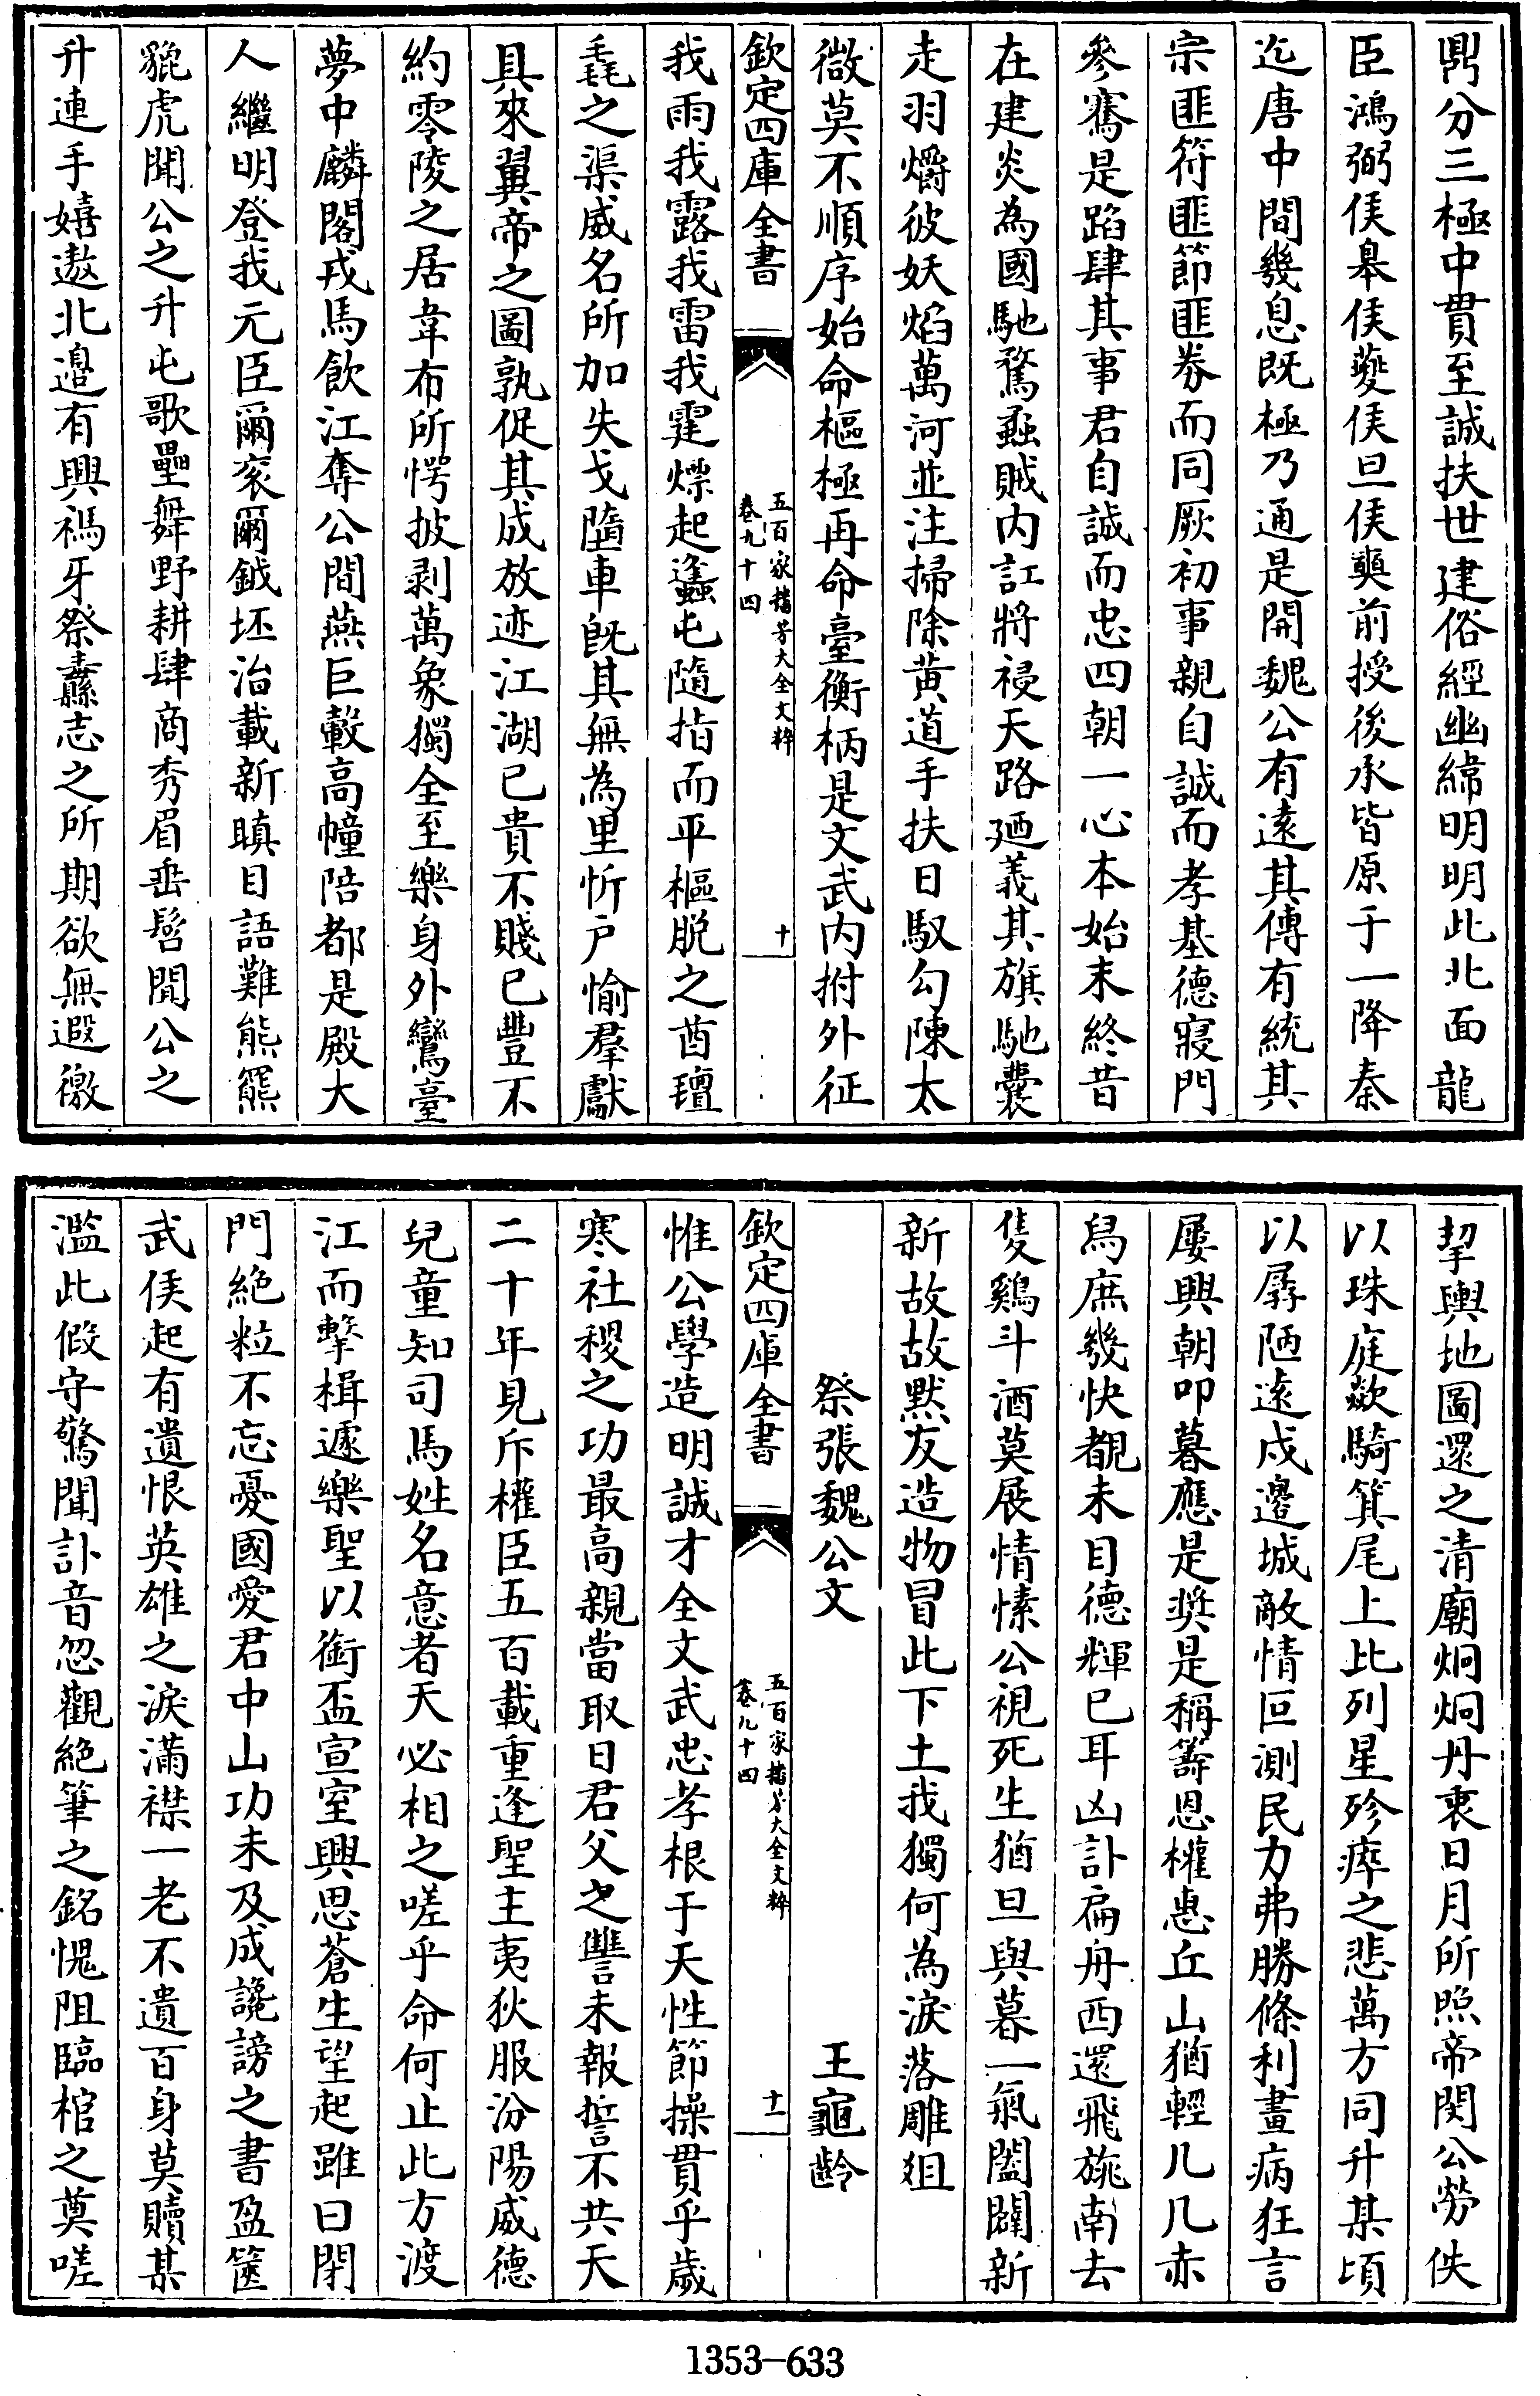 鼎分三極中貫至誠扶世建俗經幽緯明明此北面龍
臣鴻弼侯皋侯夔侯旦侯奭前授後承皆原于一降秦
迄唐中間幾息既極乃通是開魏公有遠其傳有統其
宗匪符匪節匪券而同厥初事親自誠而孝基德寢門
參騫是蹈肆其事君自誠而忠四朝一心本始末終昔
在建炎為國馳騖蟊賊内訌將祲天路廼義其旗馳櫜
走羽爝彼妖焰萬河並注掃除黃道手扶日馭勾陳太
微莫不順序始命樞極再命臺衡柄是文武内拊外征
欽定四庫全書
五百家播芳大全文粹
卷九十四
十
我雨我露我雷我霆熛起蠭屯隨指而平樞脱之酋氊
毳之渠威名所加失戈墮車旣其無為里忻户愉羣獻
具來翼帝之圖孰促其成放迹江湖已貴不賤已豐不
約零陵之居韋布所愕披剥萬象獨全至樂身外鸞臺
夢中麟閣戎馬飲江奪公間燕巨轂高幢陪都是殿大
人繼明登我元臣爾衮爾鉞坯冶載新瞋目語難熊羆
貔虎聞公之升屯歌壘舞野耕肆商秀眉垂髫聞公之
升連手嬉遨北邉有興禡牙祭纛志之所期欲無遐徼
挈輿地圖還之清廟炯炯丹衷日月所照帝閔公勞佚
以珠庭歘騎箕尾上比列星殄瘁之悲萬方同升某頃
以孱陋遠戍邊城敵情叵測民力弗勝條利畫病狂言
屢興朝叩暮應是奬是稱籌恩權惠丘山猶輕几几赤
舄庶幾快覩未目德輝已耳凶訃扁舟西還飛旐南去
隻鷄斗酒莫展情愫公視死生猶旦與暮一氣闔闢新
新故故黙友造物冒此下土我獨何為淚落雕俎
祭張魏公文
王龜齡
欽定四庫全書
五百家播芳大全文粹
卷九十四
十一
惟公學造明誠才全文武忠孝根于天性節操貫乎歲
寒社稷之功最高親當取日君父之讐未報誓不共天
二十年見斥權臣五百載重逢聖主夷狄服汾陽威德
兒童知司馬姓名意者天必相之嗟乎命何止此方渡
江而擊楫遽樂聖以銜盃宣室興思蒼生望起雖曰閉
門絶粒不忘憂國愛君中山功未及成讒謗之書盈篋
武侯起有遺恨英雄之淚滿襟一老不遺百身莫贖某
濫此假守驚聞訃音忽觀絶筆之銘愧阻臨棺之奠嗟
1353-633